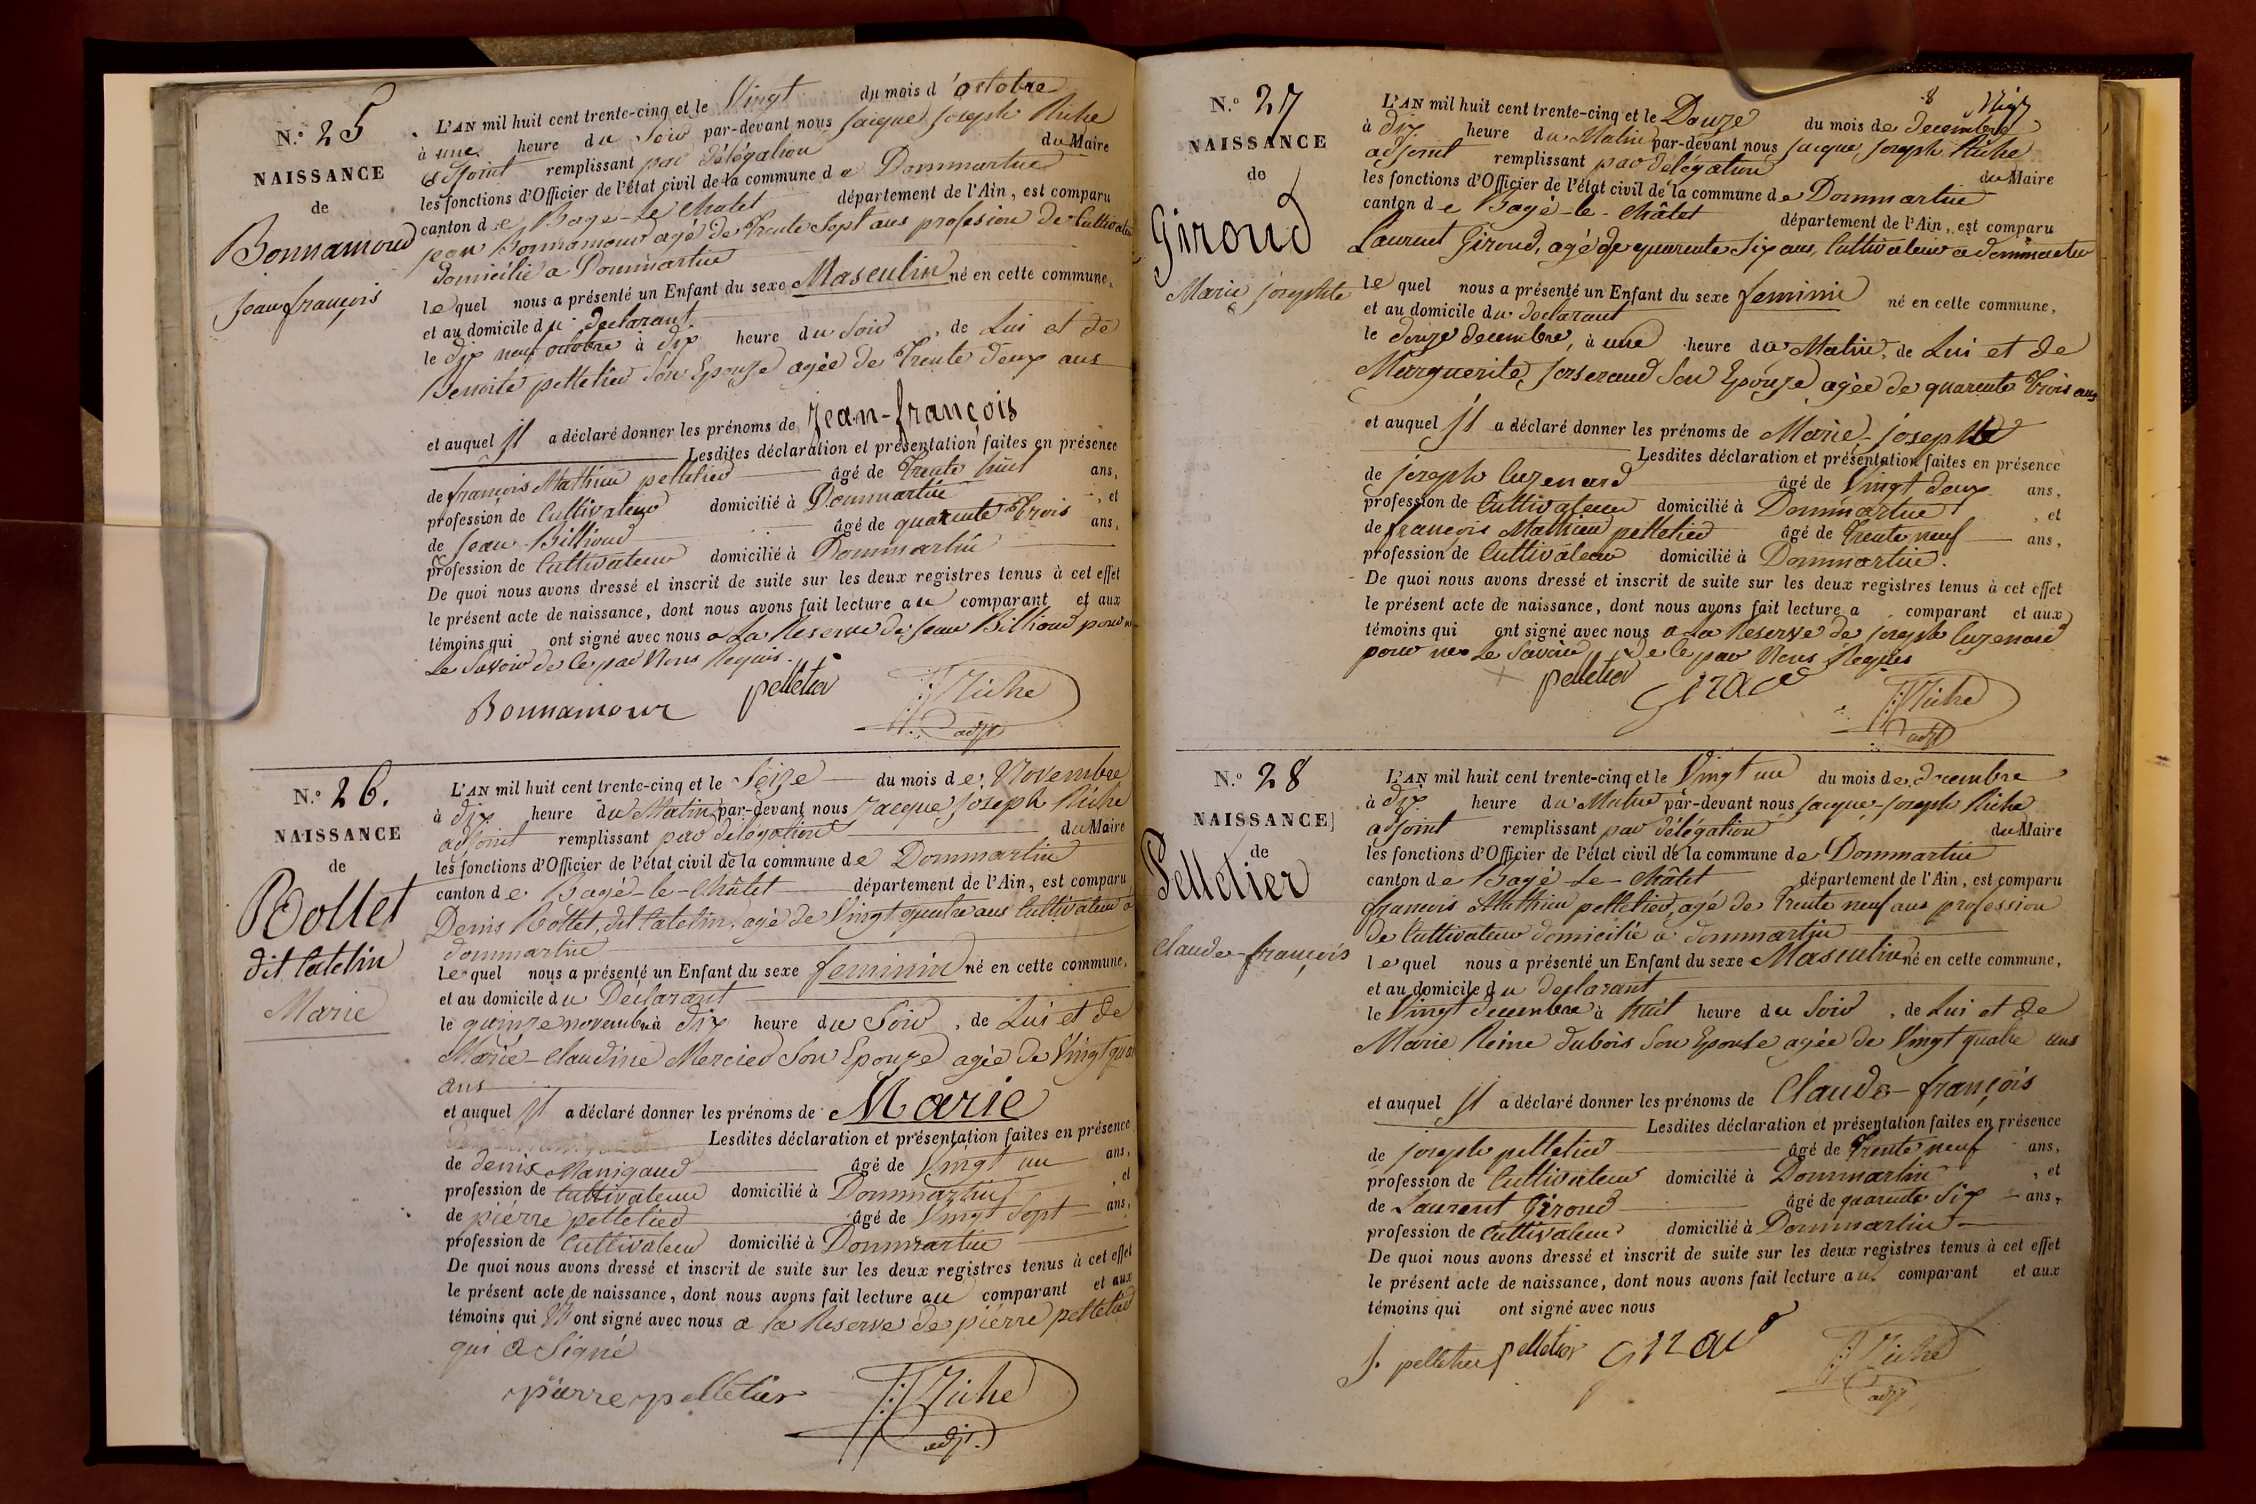 N.o 25
NAISSANCE
de
Bonnamour
Jean françois
L'AN mil huit cent trente-cinq et le Vingt du mois d'octobre
à une heure du Soir par-devant nous jacque joseph Riche
adjoint remplissant par délégation du Maire
les fonctions d'Officier de l'état civil de la commune de Dommartin
canton de Bagé-le-Chatel département de l'Ain, est comparu
jean Bonnamour agé de Trente Sept ans profession de Cultivateur
domicilié a Dommartin
lequel nous a présenté un Enfant du sexe Masculin né en cette commune,
et au domicile du declarant
le dix neuf octobre à dix heure du Soir, de Lui et de
Benoite pelletier Son Epouze agée de Trente deux ans
et auquel Jl a déclaré donner les prénoms de Jean-françois
Lesdites déclaration et présentation faites en présence
de françois Mathieu pelletier âgé de Trente huit ans,
profession de Cultivateur domicilié à Dommartin, et
de Jean Billioud âgé de quarente Trois ans,
profession de Cultivateur domicilié à Dommartin
De quoi nous avons dressé et inscrit de suite sur les deux registres tenus à cet effet
le présent acte de naissance, dont nous avons fait lecture au comparant et aux
témoins qui ont signé avec nous a La Reserve de Jean Billioud pour ne
Le Savoir de Ce par Nous Requis.
Bonnamour pelletier JJRiche
adjt
N.o 26.
NAISSANCE
de
Rollet
dit Catelin
Marie
L'AN mil huit cent trente-cinq et le Seize du mois de Novembre
à dix heure du Matin par-devant nous jacque joseph Riche
adjoint remplissant par délégation du Maire
les fonctions d'Officier de l'état civil de la commune de Dommartin
canton de Bagé-le-Châtel département de l'Ain, est comparu
Denis Rollet, dit Catelin, agé de Vingt quatre ans Cultivateur a
dommartin
lequel nous a présenté un Enfant du sexe feminin né en cette commune,
et au domicile du Déclarant
le quinze novembre à dix heure du Soir, de Lui et de
Marie-Claudine Mercier Son Epouze agée de Vingt quat
ans
et auquel Jl a déclaré donner les prénoms de Marie
Lesdites déclaration et présentation faites en présence
de denis Manigaud âgé de Vingt un ans,
profession de Cultivateur domicilié à Dommartin, et
de piérre pelletier âgé de Vingt Sept ans,
profession de Cultivateur domicilié à Dommartin
De quoi nous avons dressé et inscrit de suite sur les deux registres tenus à cet effet
le présent acte de naissance, dont nous avons fait lecture au comparant et aux
témoins qui ont signé avec nous a la Reserve de piérre pelletier
qui a Signé
piarre pelletier JJRiche
adjt.
N.o 27
NAISSANCE
de
Giroud
Marie josephte
8
L'AN mil huit cent trente-cinq et le Douze du mois de decembre
à dix heure du Matin par-devant nous jacque joseph Riche
adjoint remplissant par délégation du Maire
les fonctions d'Officier de l'état civil de la commune de Dommartin
canton de Bagé-le-Châtel département de l'Ain, est comparu
Laurent Giroud, agé de quarente Six ans, Cultivateur a dommartin
lequel nous a présenté un Enfant du sexe feminin né en cette commune,
et au domicile du déclarant
le douze decembre, à une heure du Matin, de Lui et de
Marguerite Josserand Son Epouze agée de quarente Trois ans
et auquel Jl a déclaré donner les prénoms de Marie-josephte
Lesdites déclaration et présentation faites en présence
de joseph Cuzenard âgé de Vingt deux ans,
profession de Cultivateur domicilié à Dommartin, et
de françois Mathieu pelletier âgé de Trente neuf ans,
profession de Cultivateur domicilié à Dommartin.
De quoi nous avons dressé et inscrit de suite sur les deux registres tenus à cet effet
le présent acte de naissance, dont nous avons fait lecture a comparant et aux
témoins qui ont signé avec nous a La Reserve de joseph Cuzenard
pour ne Le Savoir De Ce par Nous Requis
pelletier JJRiche
adjt
N.o 28
NAISSANCE
de
Pelletier
Claude-françois
L'AN mil huit cent trente-cinq et le Vingt un du mois de decembre
à dix heure du Matin par-devant nous jacque-joseph Riche
adjoint remplissant par délégation du Maire
les fonctions d'Officier de l'état civil de la commune de Dommartin
canton de Bagé-Le-Châtel département de l'Ain, est comparu
françois Mathieu pelletier, agé de Trente neuf ans profession
de Cultivateur domicilié a dommartin
lequel nous a présenté un Enfant du sexe Masculin né en cette commune,
et au domicile du declarant
le Vingt decembre à huit heure du Soir, de Lui et de
Marie Reine dubois Son Epouse agée de Vingt quatre ans
et auquel Jl a déclaré donner les prénoms de Claude-françois
Lesdites déclaration et présentation faites en présence
de joseph pelletier âgé de Trente neuf ans,
profession de Cultivateur domicilié à Dommartin, et
de Laurent Giroud âgé de quarente Six ans,
profession de Cultivateur domicilié à Dommartin
De quoi nous avons dressé et inscrit de suite sur les deux registres tenus à cet effet
le présent acte de naissance, dont nous avons fait lecture au comparant et aux
témoins qui ont signé avec nous
J. pelletier pelletier JJRiche
adjt